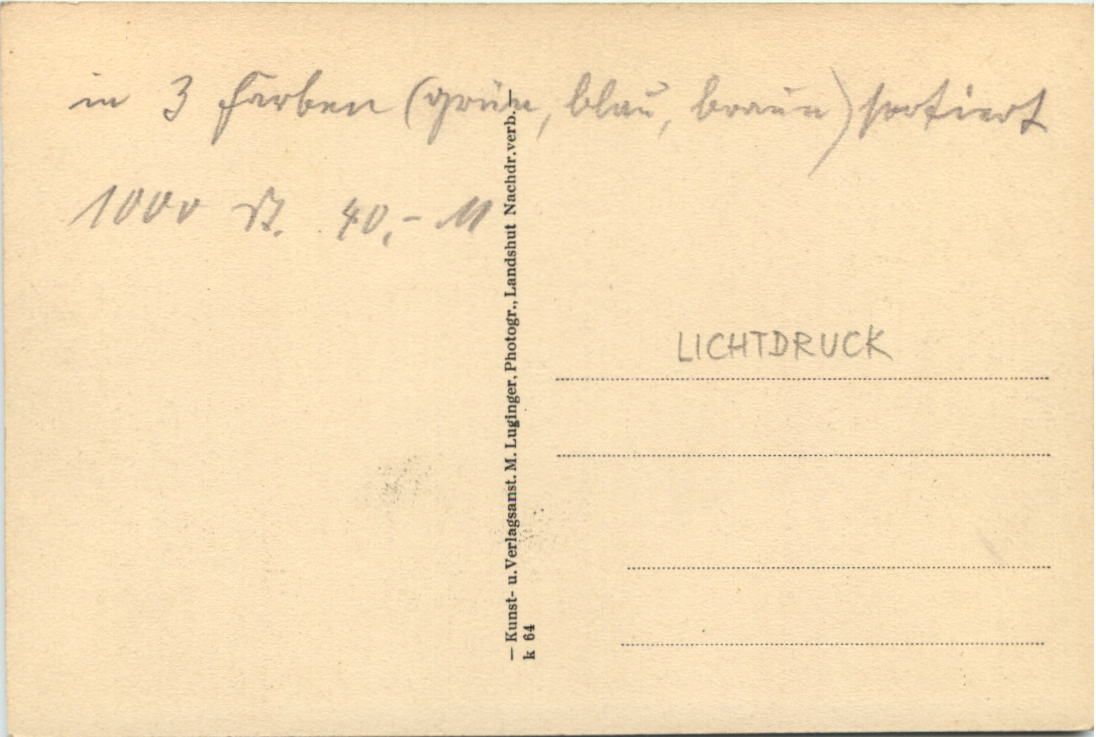 in 3 Farben (grün, blau, braun) sortiert
1000 St. 40,- M
LICHTDRUCK
— Kunst- u. Verlagsanst. M. Luginger, Photogr., Landshut Nachdr. verb. —
k 64